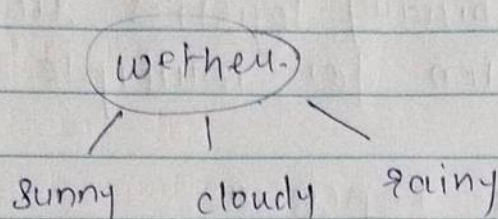 wether.
sunny cloudy rainy